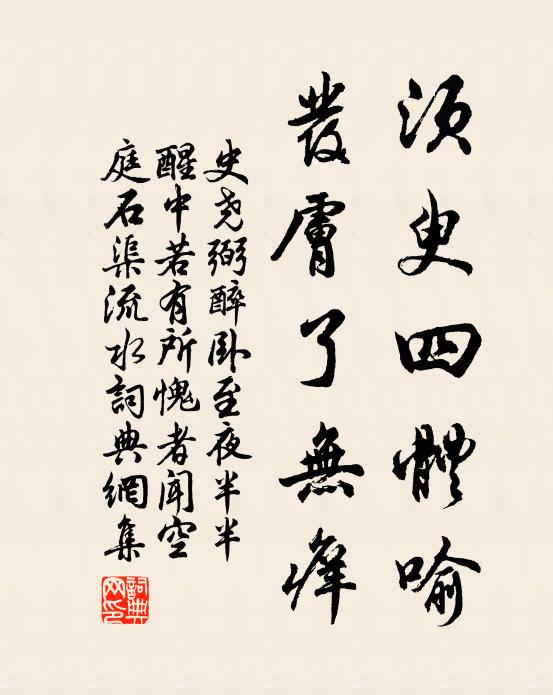 須臾四體喻
髮膚了無癢
史尧弼醉卧至夜半半
醒中若有所愧者闻空
庭石渠流水詞典網集
詞典
网印